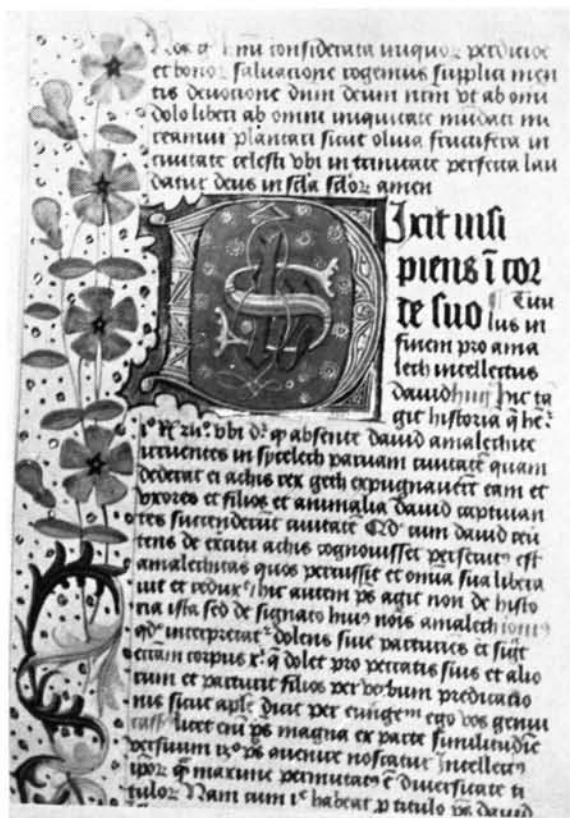 considerata iniquoꝝ perdicioē
et bonoꝝ saluacione rogemus suplici men
tis deuocione dum deum nrm̄ vt ab omi
dolo liberi ab omni iniquitate mūdati me
reamur plantari sicut oliua fructifera in
ciuitate celesti vbi in trinitate perfecta lau
datur deus in scl̄a scl̄oꝝ amen
Dixit insi
piens ī cor
de suo Titu
lus in
finem pro ama
lech intellectus
dauid huiꝰ hic tā
git historia q̄
vbi absente dauid amalechite
irruentes in sycelech paruam ciuitatē quam
dederat ei achis rex geth expugnauerūt eam et
vxores et filios et animalia dauid captiuan
tes succenderūt ciuitatē Qd̄ cum dauid
de achis cognouisset persecutꝰ est
amalechitas quos percussit et omīa sua libera
uit et hic autem ps̄ agit non de histo
ria ista sed de signato huiꝰ nois amalech
qd̄ interpretat᷑ dolens siue parturiēs et
eciam corpus q̄ dolet pro peccatis suis et alio
rum et parturit filios per verbum predicacio
nis sicut apls̄ dicit per euāgeᵐ ego vos genui
licet ps̄ magna ex parte similitudīe
ps̄ noscatur Intellectꝰ
maxime permutatꝰ ē diuersitate ti
tuloꝝ Nam cum habeat titulo ps̄ dauid